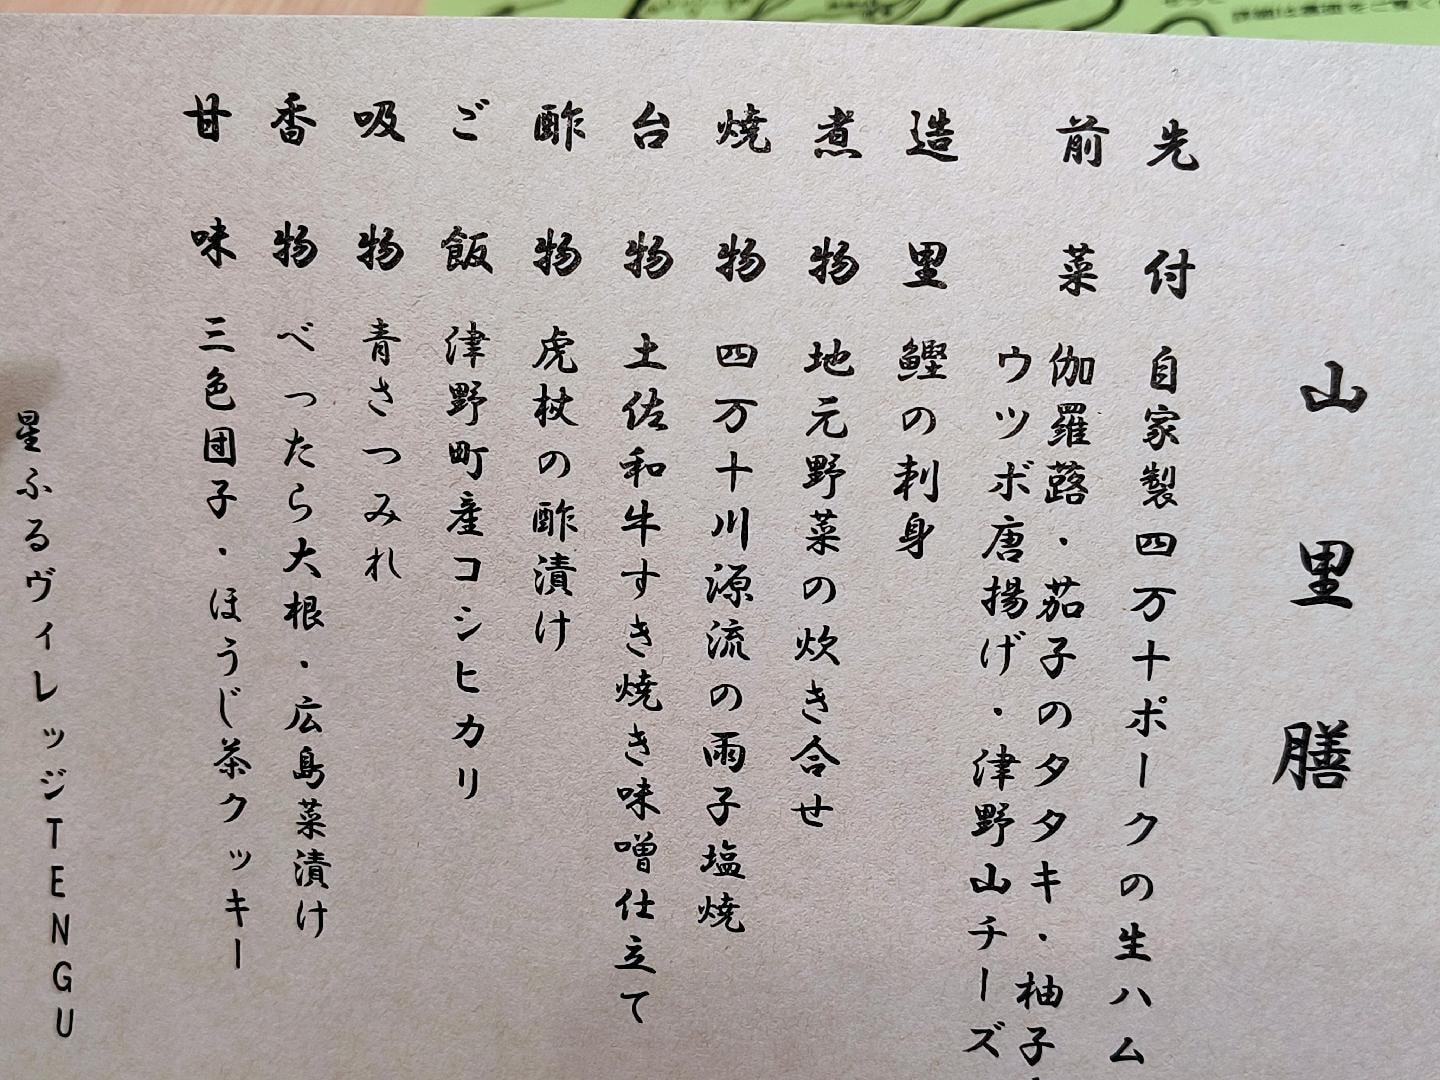 山里膳
先付 自家製四万十ポークの生ハム
前菜 伽羅蕗・茄子のタタキ・柚子
ウツボ唐揚げ・津野山チーズ
造里 鰹の刺身
煮物 地元野菜の炊き合せ
焼物 四万十川源流の雨子塩焼
台物 土佐和牛すき焼き味噌仕立て
酢物 虎杖の酢漬け
ご飯 津野町産コシヒカリ
吸物 青さつみれ
香物 べったら大根・広島菜漬け
甘味 三色団子・ほうじ茶クッキー
星ふるヴィレッジTENGU